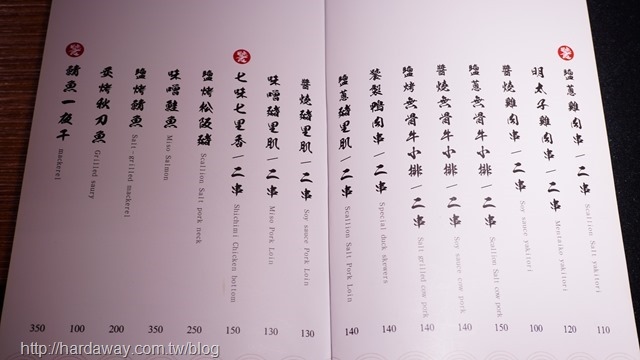 鹽蔥雞肉串|二串 Scallion Salt yakitori 110
明太子雞肉串|二串 Mentaiko yakitori 120
醬燒雞肉串|二串 Soy sauce yakitori 100
鹽蔥無骨牛小排|二串 Scallion Salt cow pork 150
醬燒無骨牛小排|二串 Soy sauce cow pork 140
鹽烤無骨牛小排|二串 Salt grilled cow pork 140
鴨肉串|二串 Special duck skewers 140
鹽蔥豬里肌|二串 Scallion Salt Pork Loin 140
醬燒豬里肌|二串 Soy sauce Pork Loin 130
味噌豬里肌|二串 Miso Pork Loin 130
七味七里香|二串 Shichimi Chicken bottom 150
鹽烤松阪豬 Scallion Salt pork neck 250
味噌鮭魚 Miso Salmon 350
鹽烤鯖魚 Salt-grilled mackerel 200
炙烤秋刀魚 Grilled saury 100
鯖魚一夜干 mackerel 350
http://hardaway.com.tw/blog